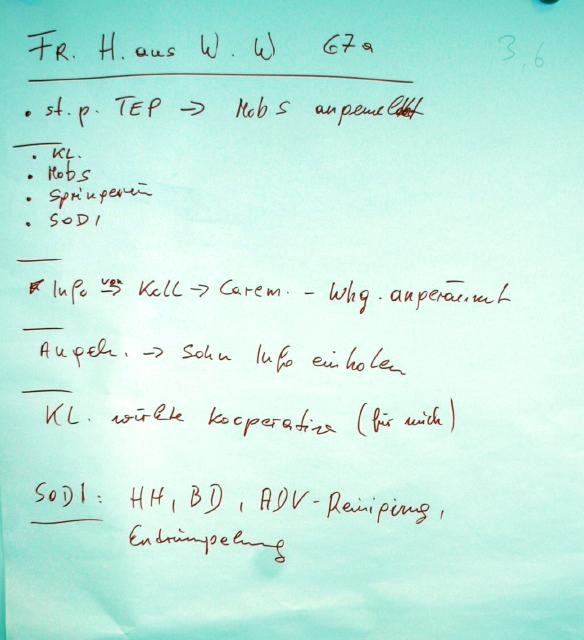 FR. H. aus W. W 67a
3,6
• st. p. TEP → MobS angemeldet
• KL.
• MobS
• Springerin
• SODI
Info von Koll → Carem. - Whg. angeräumt
Angeh. → Sohn Info einholen
KL. wirkte kooperativ (für mich)
SODI: HH, BD, ADV-Reinigung,
Entrümpelung